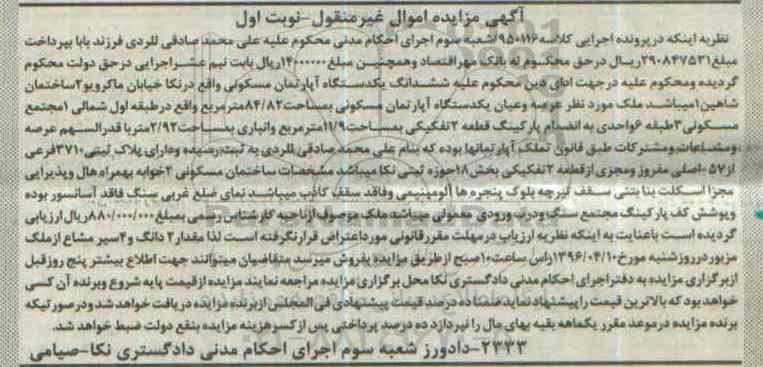 آگهی مزایده اموال غیرمنقول-نوبت اول
نظر به اینکه در پرونده اجرایی کلاسه ۹۵۰۱۱۶/شعبه سوم اجرای احکام مدنی محکوم علیه علی محمد صادقی للردی فرزند بابا بپرداخت
مبلغ ۲۹۰۸۴۷۵۳۱ریـال درحق محکـوم له بانک مهر اقتصاد وهمچنین مبلغ ۱۴۰۰۰۰۰۰ریال بابت نیم عشر اجرایی در حق دولت محکوم
گردیده ومحکوم علیه درجهت ادای دین محکوم علیه ششدانگ یکدسـتگاه آپارتمان مسکونی واقع در نکا خیابان ماکرویو ۲ساختمان
شاهین ۱میباشـد ملک مورد نظر عرصه وعیان یکدستگاه آپارتمان مسکونی بمساحت ۸۴/۸۲مترمربع واقع درطبقه اول شمالی ۱مجتمع
مسـکونی ۳طبقه ۶واحدی به انضمام پارکینگ قطعه ۲تفکیکی بمسـاحت ۱۱/۹مترمربع وانباری بمسـاحت ۲/۹۲متر با قدرالسـهم عرصه
ومشـاعات ومشترکات طبق قانون تملک آپارتمانها بوده که بنام علی محمد صادقی للردی به ثبت رسیده ودارای پلاک ثبتی ۳۷۱۰فرعی
از ۵۷-اصلی مفروز ومجزی از قطعه ۲تفکیکی بخش ۱۸حوزه ثبتی نکا میباشد مشخصات ساختمان مسکونی ۲خوابه بهمراه هال وپذیرایی
مجزا اسـکلت بنا بتنی سـقف تیرچه بلوک پنجره ها آلومینیمی وفاقد سقف کاذب میباشـد نمای ضلع غربی سنگ فاقد آسانسور بوده
وپوشش کف پارکینگ مجتمع سنگ ودرب ورودی معمولی میباشد ملک موصوف ازناحیه کارشناس رسمی بمبلغ ۸۸۰/۰۰۰/۰۰۰ریال ارزیابی
گردیده اسـت باعنایت به اینکه نظریه ارزیاب درمهلت مقرر قانونی مورد اعتراض قرار نگرفته است لذا مقدار ۲ دانگ و ۴سیر مشاع از ملک
مزبور درروز شنبه مورخ ۱۳۹۶/۰۴/۱۰راس ساعت ۱۰صبح از طریق مزایده بفروش میرسد متقاضیان میتوانند جهت اطلاع بیشتر پنج روز قبل
از برگزاری مزایده به دفتر اجرای احکام مدنی دادگستری نکا محل برگزاری مزایده مراجعه نمایند مزایده از قیمت پایه شروع وبرنده آن کسی
خواهد بود که بالاترین قیمت را پیشنهاد نماید ضمنا ده درصد قیمت پیشنهادی فی المجلس از برنده مزایده دریافت خواهد شد ودر صورتیکه
برنده مزایده در موعد مقرر یکماهه بقیه بهای مال را نپردازد ده درصد پرداختی پس از کسر هزینه مزایده بنفع دولت ضبط خواهد شد.
۲۳۳۳-دادورز شعبه سوم اجرای احکام مدنی دادگستری نکا-صیامی